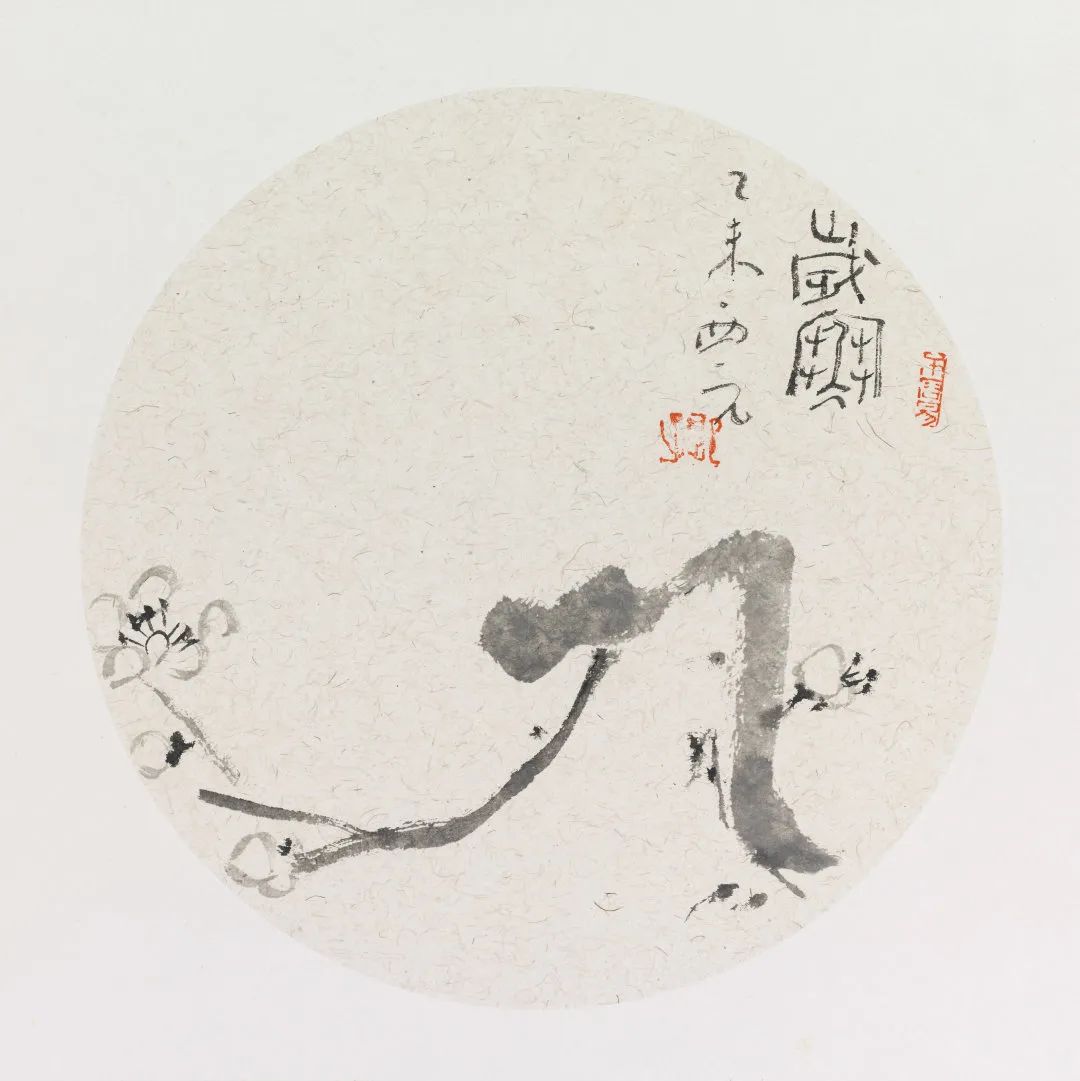 歲寒
乙未西元